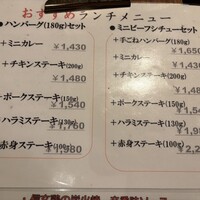 おすすめランチメニュー
●ハンバーグ(180g)セット
+ミニカレー
¥1,430
+チキンステーキ(200g)
¥1,480
+ポークステーキ(150g)
¥1,540
+ハラミステーキ(130g)
¥1,760
+赤身ステーキ(100g)
¥1,980
●ミニビーフシチューセット
+手ごねハンバーグ(180g)
¥1,650
+ミニカレー
¥1,430
+チキンステーキ(200g)
+ポークステーキ(150g)
+ハラミステーキ(130g)
+赤身ステーキ(100g)